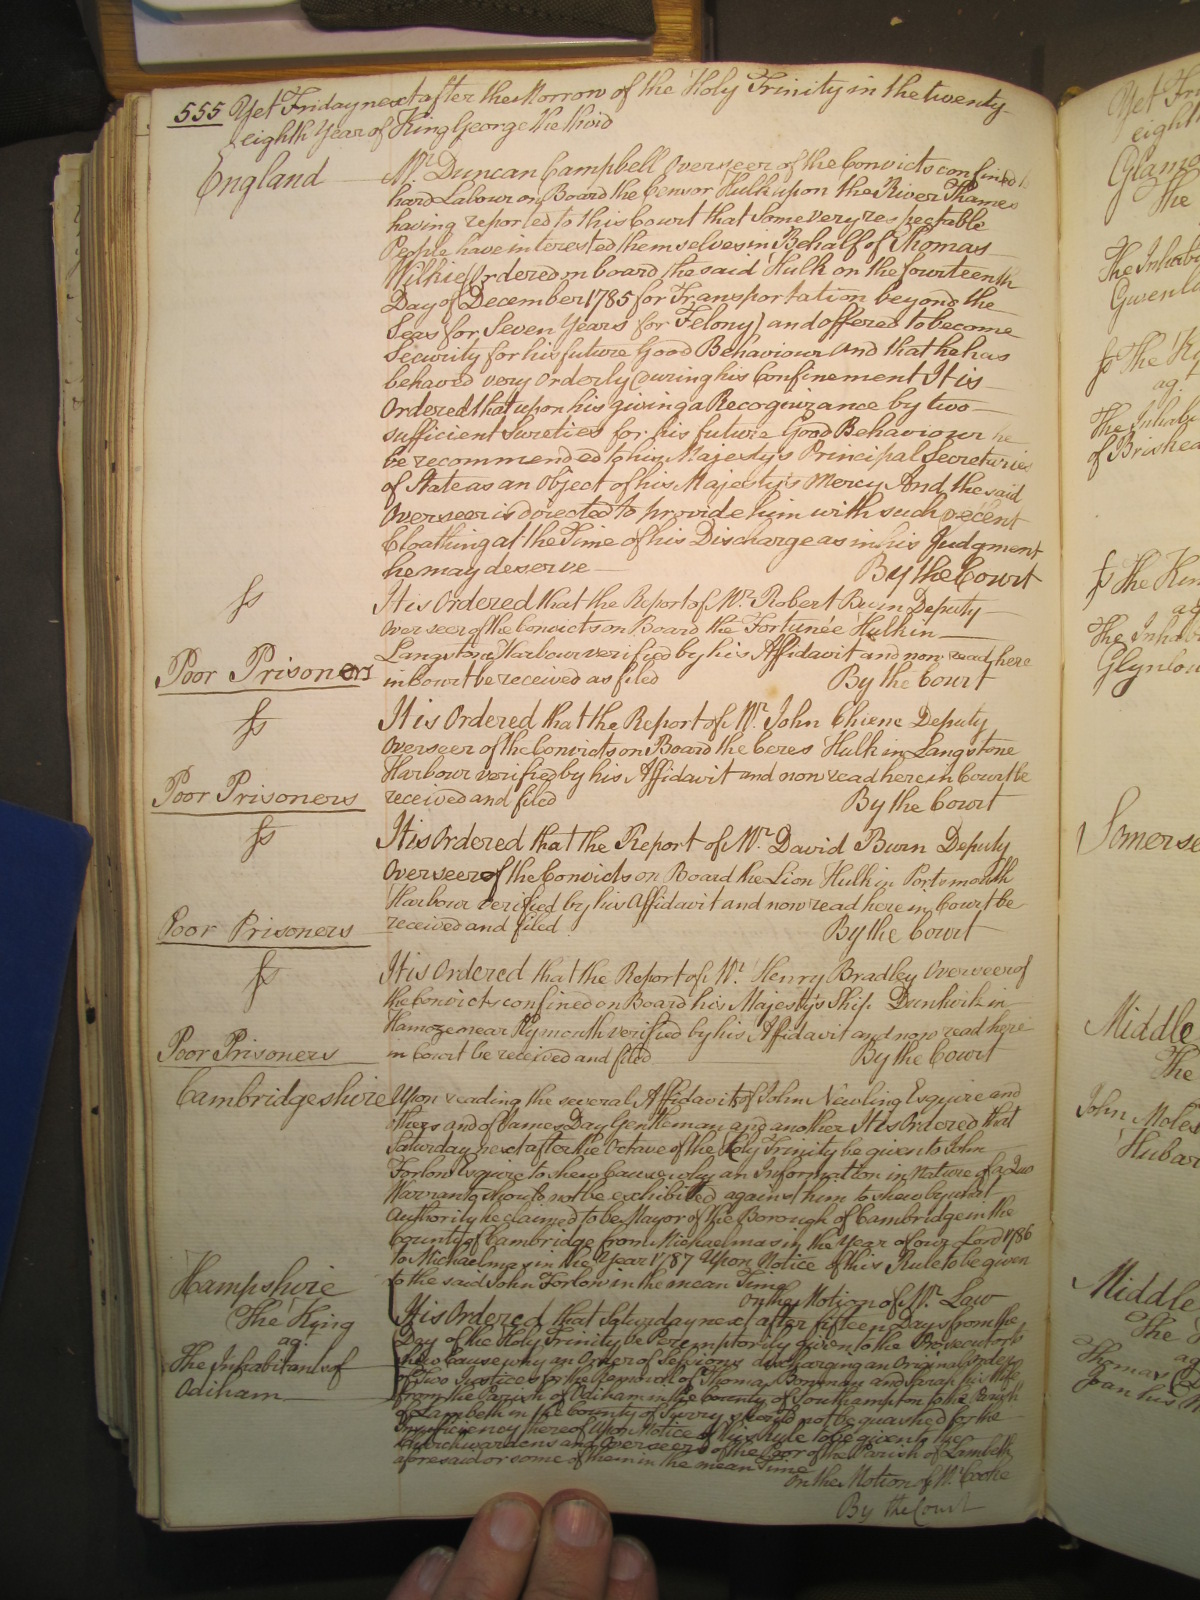 555 Yet Friday next after the Morrow of the Holy Trinity in the twenty
eighth Year of King George the third
England Mr. Duncan Campbell Overseer of the Convicts confined to
hard Labour on Board the Censor Hulk upon the River Thames
having reported to this Court that some very respectable
People have interested themselves in Behalf of Thomas
Wilkie (Ordered on board the said Hulk on the fourteenth
Day of December 1785 for Transportation beyond the
Seas for Seven Years for Felony) and offered to become
Security for his future Good Behaviour And that he has
behaved very Orderly during his Confinement It is
Ordered that upon his giving a Recognizance by two
sufficient Sureties for his future Good Behaviour he
be recommended to his Majesty's Principal Secretaries
of State as an Object of his Majesty's Mercy And the said
Overseer is directed to provide him with such decent
Cloathing at the Time of his Discharge as in his Judgment
he may deserve By the Court
ss It is Ordered that the Report of Mr. Robert Burn Deputy
Overseer of the Convicts on Board the Fortunée Hulk in
Langstone Harbour verified by his Affidavit and now read here
Poor Prisoners in Court be received as filed By the Court
ss It is Ordered that the Report of Mr. John Chiene Deputy
Overseer of the Convicts on Board the Ceres Hulk in Langstone
Harbour verified by his Affidavit and now read here in Court be
Poor Prisoners received and filed By the Court
ss It is Ordered that the Report of Mr. David Burn Deputy
Overseer of the Convicts on Board the Lion Hulk in Portsmouth
Harbour verified by his Affidavit and now read here in Court be
Poor Prisoners received and filed By the Court
ss It is Ordered that the Report of Mr. Henry Bradley Overseer of
the Convicts confined on Board his Majesty's Ship Dunkirk in
Hamoze near Plymouth verified by his Affidavit and now read here
Poor Prisoners in Court be received and filed By the Court
Cambridgeshire Upon reading the several Affidavits of John Newling Esquire and
others and of James Day Gentleman and another It is Ordered that
Saturday next after the Octave of the Holy Trinity be given to John
Forlow Esquire to shew Cause why an Information in Nature of a Quo
Warranto should not be exhibited against him to shew by what
Authority he claimed to be Mayor of the Borough of Cambridge in the
County of Cambridge from Michaelmas in the Year of our Lord 1786
to Michaelmas in the Year 1787 Upon Notice of this Rule to be given
to the said John Forlow in the mean Time
On the Motion of Mr. Law
Hampshire
The King
ag.
The Inhabitants of
Odiham
It is Ordered that Saturday next after fifteen Days from the
Day of the Holy Trinity be Peremptorily given to the Prosecutor to
shew Cause why an Order of Sessions discharging an Original Order
of two Justices for the Removal of Thomas and Sarah his Wife
from the Parish of Odiham in the County of Southampton to the Parish
of Lambeth in the County of Surry should not be quashed for the
Insufficiency thereof Upon Notice of this Rule to be given to the
Churchwardens and Overseers of the Poor of the Parish of Lambeth
aforesaid or some of them in the mean Time
On the Motion of Mr. Cooke
By the Court
eighth
The
ss The
ag.
The
ss The
The
Middle
The
John
Middle
The
ag
Thomas